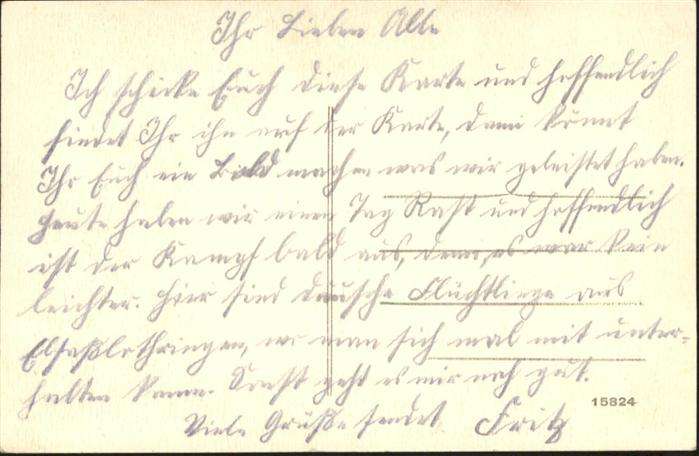 Ihr Lieben Alle
Ich schicke Euch diese Karte und hoffendlich
findet Ihr ihn auf der Karte, dann könnt
Ihr Euch ein Bild machen was wir geleistet haben.
Heute haben wir einen Tag Rast und hoffendlich
ist der Kampf bald aus, denn es war kein
leichter. Hier sind deutsche Flüchtlinge aus
Elsaßlothringen, wo man sich mal mit unter-
halten kann. Sonst geht es mir noch gut.
15824
Viele Grüße sendet Fritz